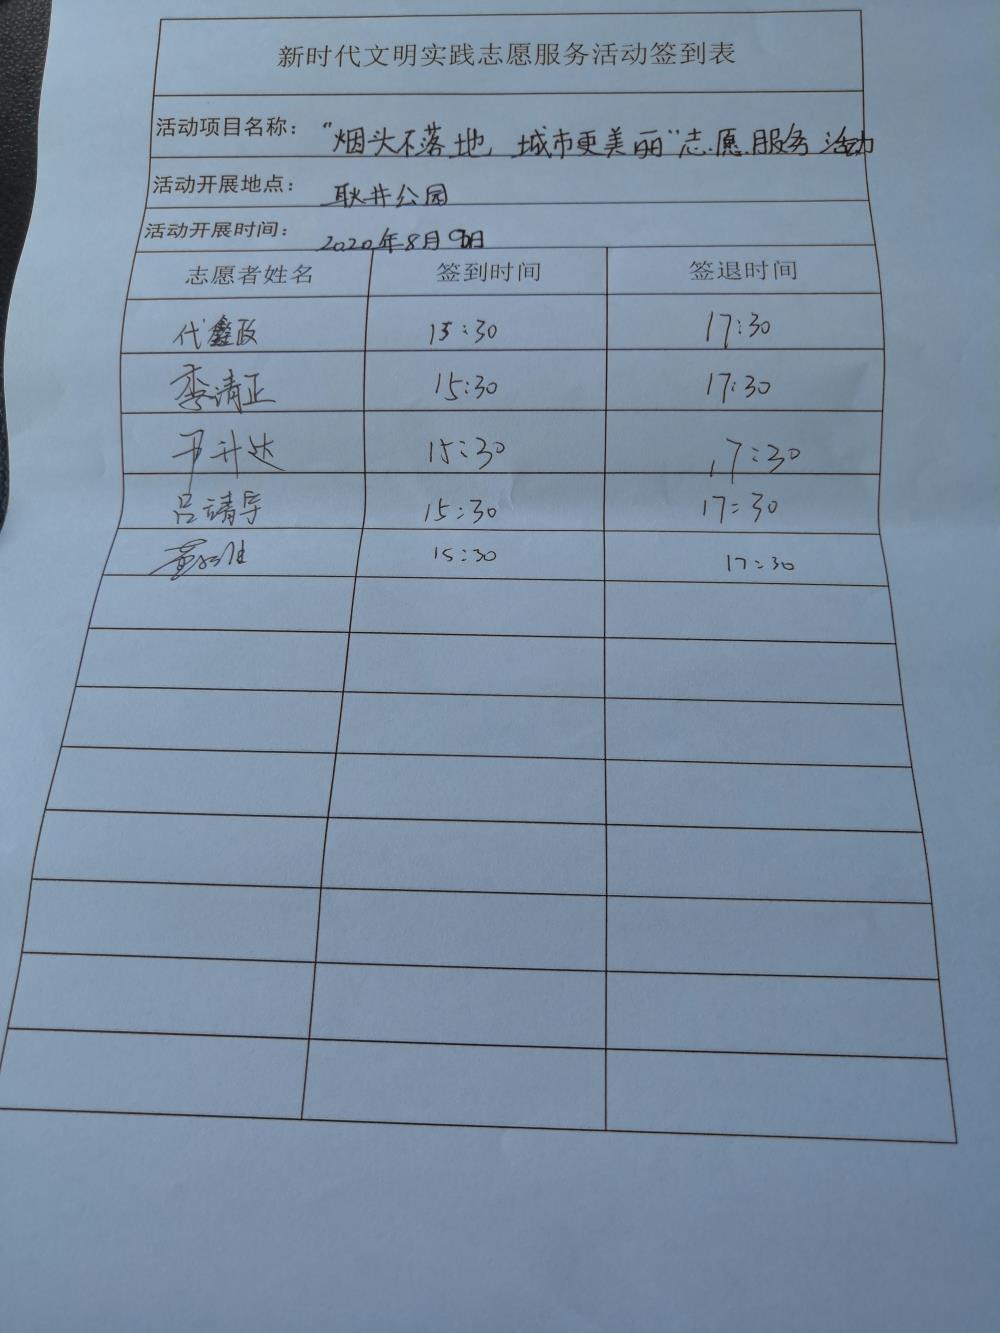 新时代文明实践志愿服务活动签到表
活动项目名称： “烟头不落地，城市更美丽”志愿服务活动
活动开展地点： 耿井公园
活动开展时间： 2020年8月9日
志愿者姓名 签到时间 签退时间
代鑫政 15:30 17:30
李清正 15:30 17:30
尹升达 15:30 17:30
吕靖导 15:30 17:30
15:30 17:30